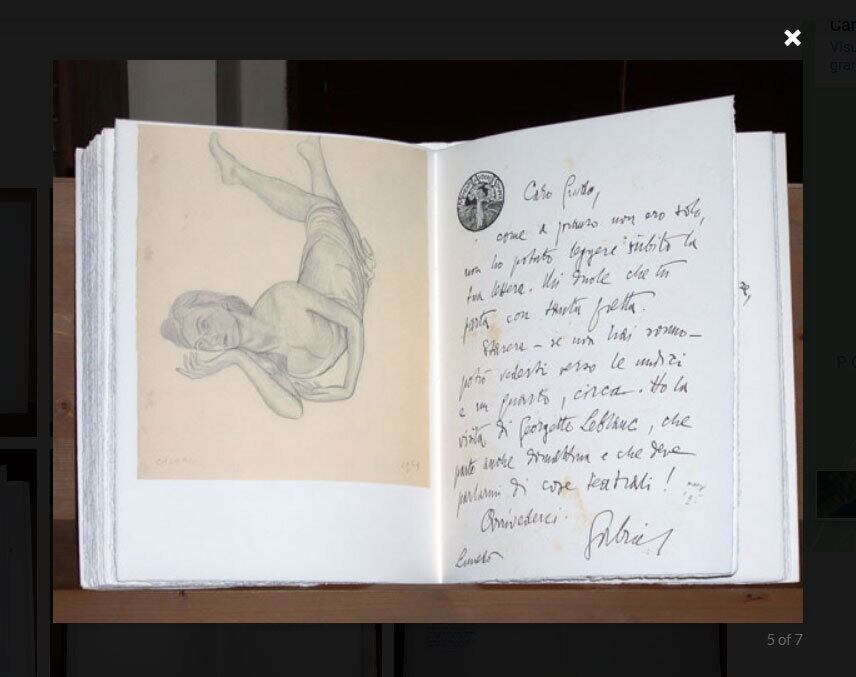 Caro Guido,
come a pranzo non ero solo,
non ho potuto leggere subito la
tua lettera. Mi duole che tu
parta con tanta fretta.
Stasera – se non hai sonno –
potrò vederti verso le undici
e un quarto, circa. Ho la
visita di Georgette Leblanc, che
parte anche domattina e che deve
parlarmi di cose teatrali!
Arrivederci.
Gabriel
5 of 7